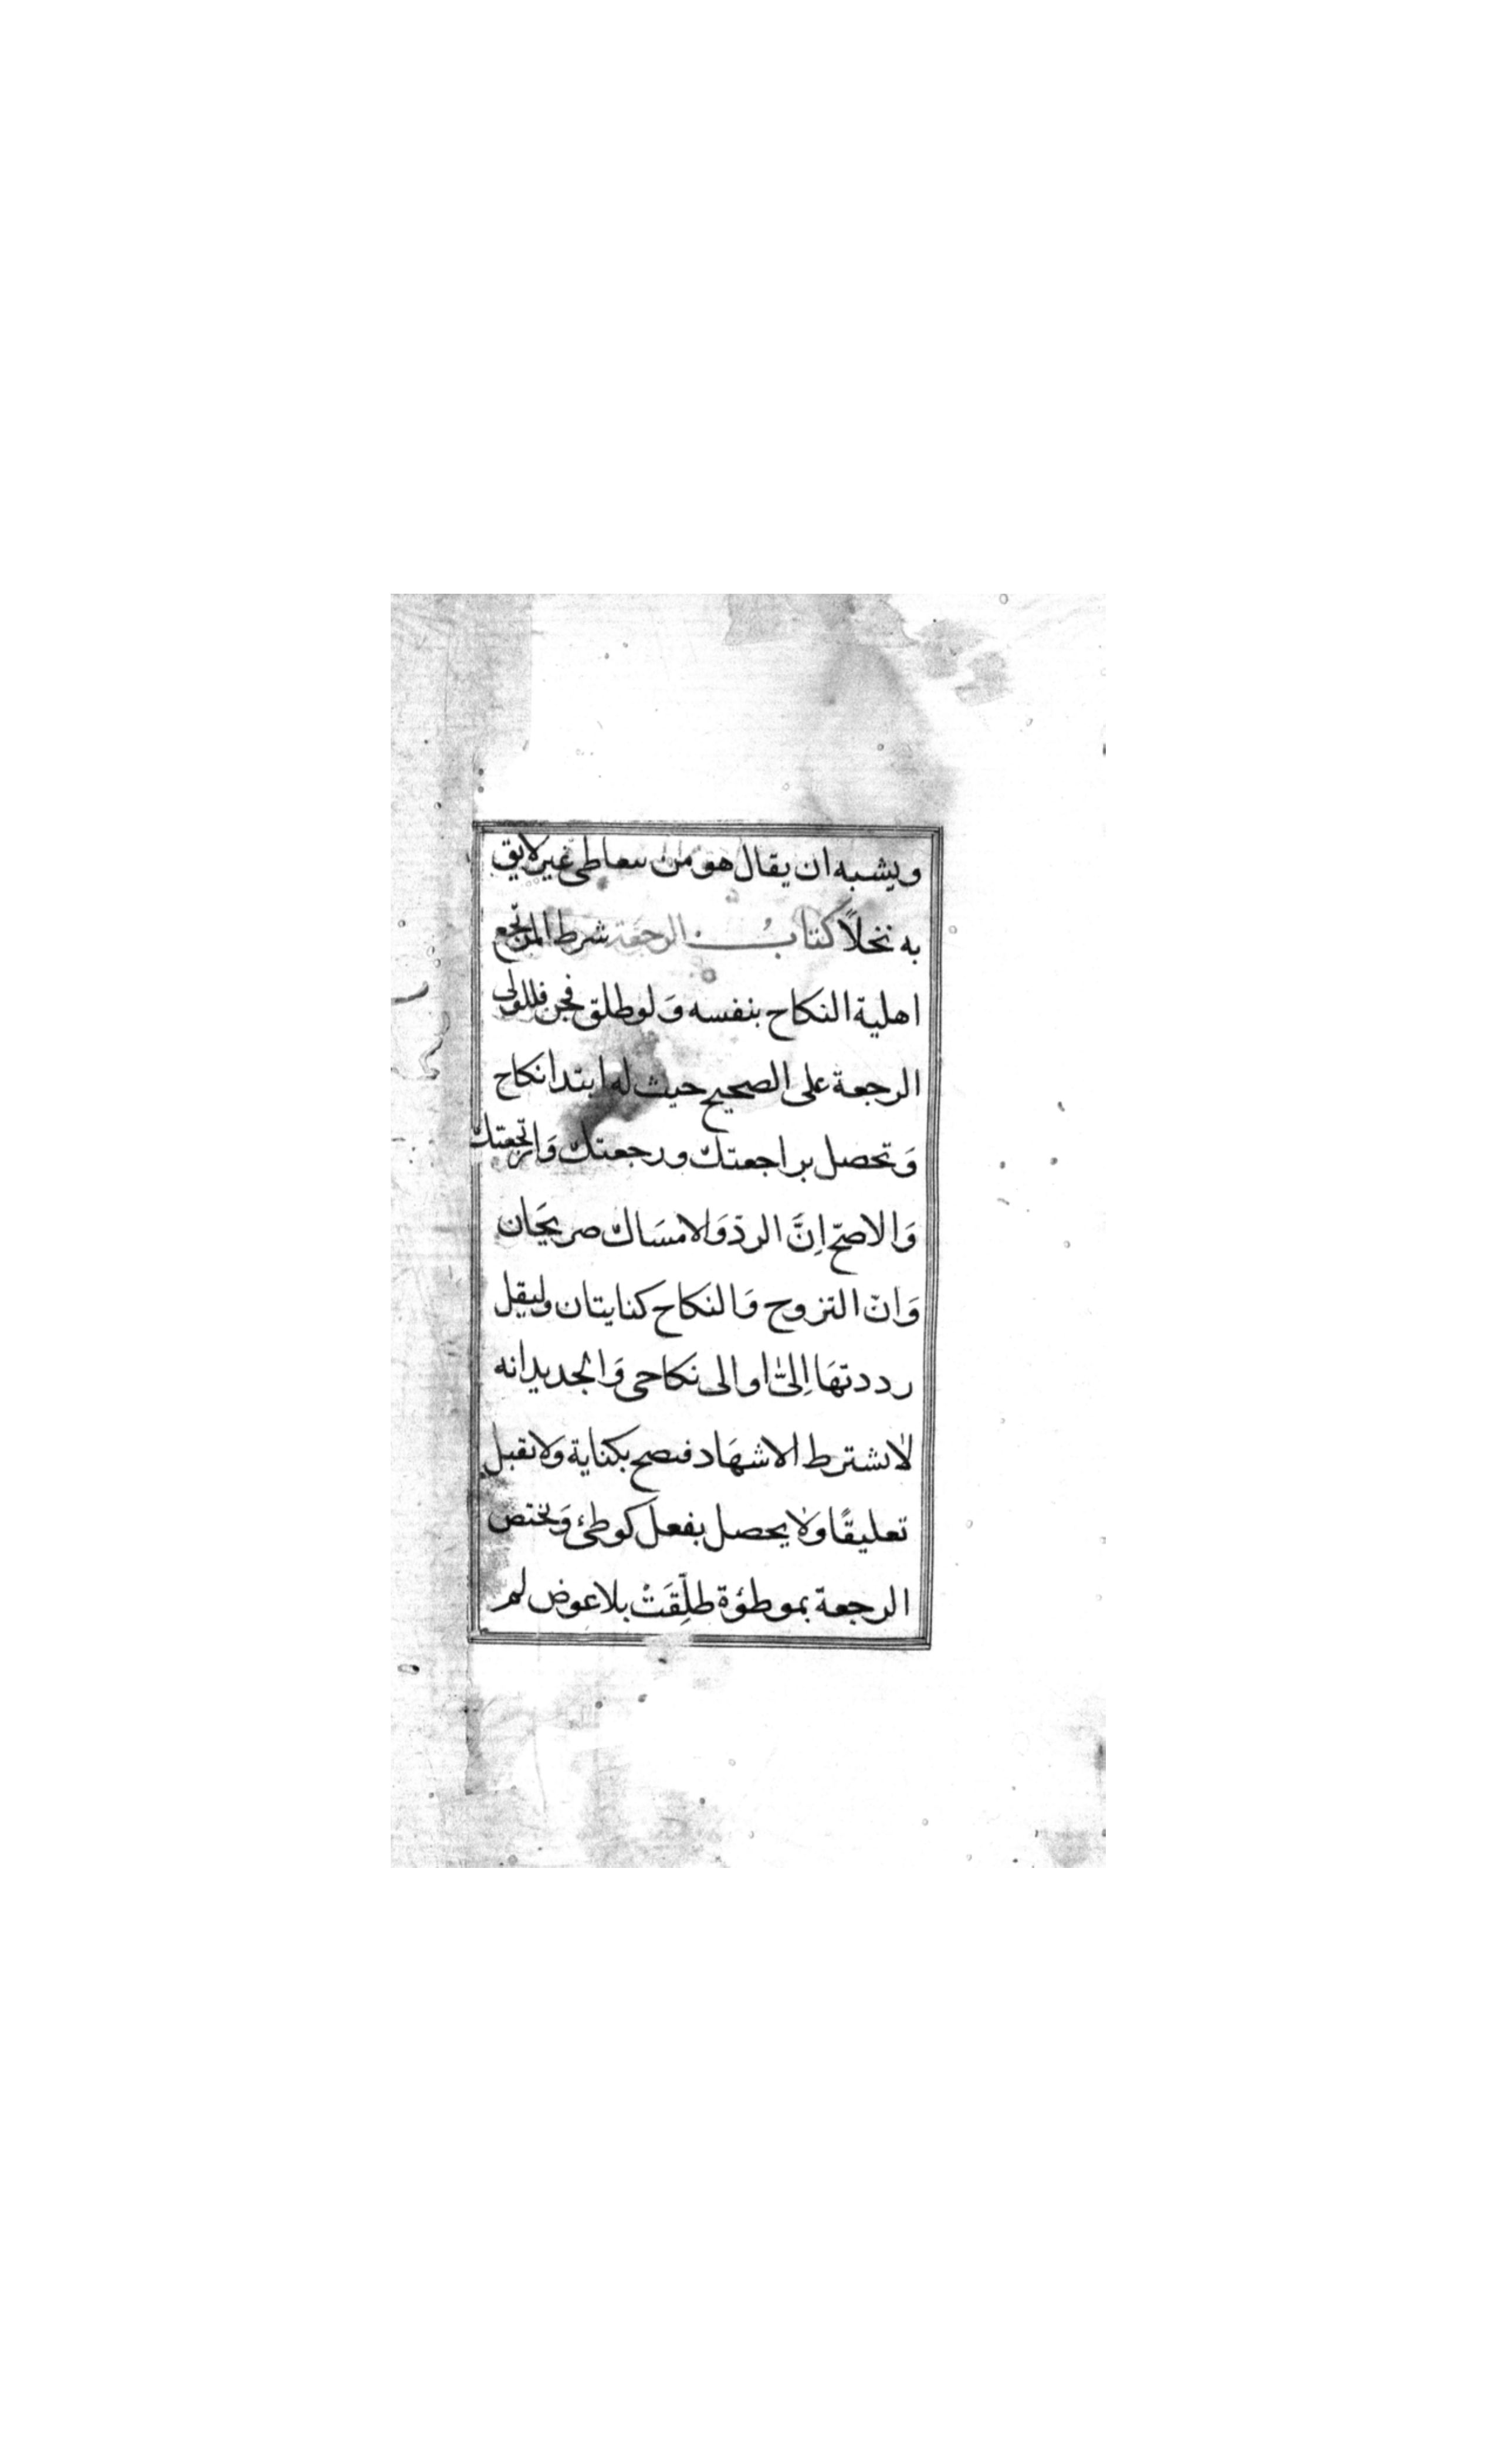 ويشبه ان يقال هو من يتعاطى غير لايق
به بخلاً كتابُ الرجعة شرط المرتجع
اهلية النكاح بنفسه وَلو طلق فجن فللولى
الرجعة على الصحيح حيث له ابتدا نكاح
وَتحصل براجعتك ورجعتك وَارتجعتك
وَالاصحّ اِنَّ الردّ وَالامسَاك صريحَان
وَانّ التزوج وَالنكاح كنايتان وليقل
رددتهَا اِلىَّ او الى نكاحى وَالجديد انه
لا يشترط الاشهَاد فيصح بكناية وَلا تقبل
تعليقًا ولا يحصل بفعل كوطئ وَتختص
الرجعة بموطؤة طلِّقَتْ بلا عوض لم